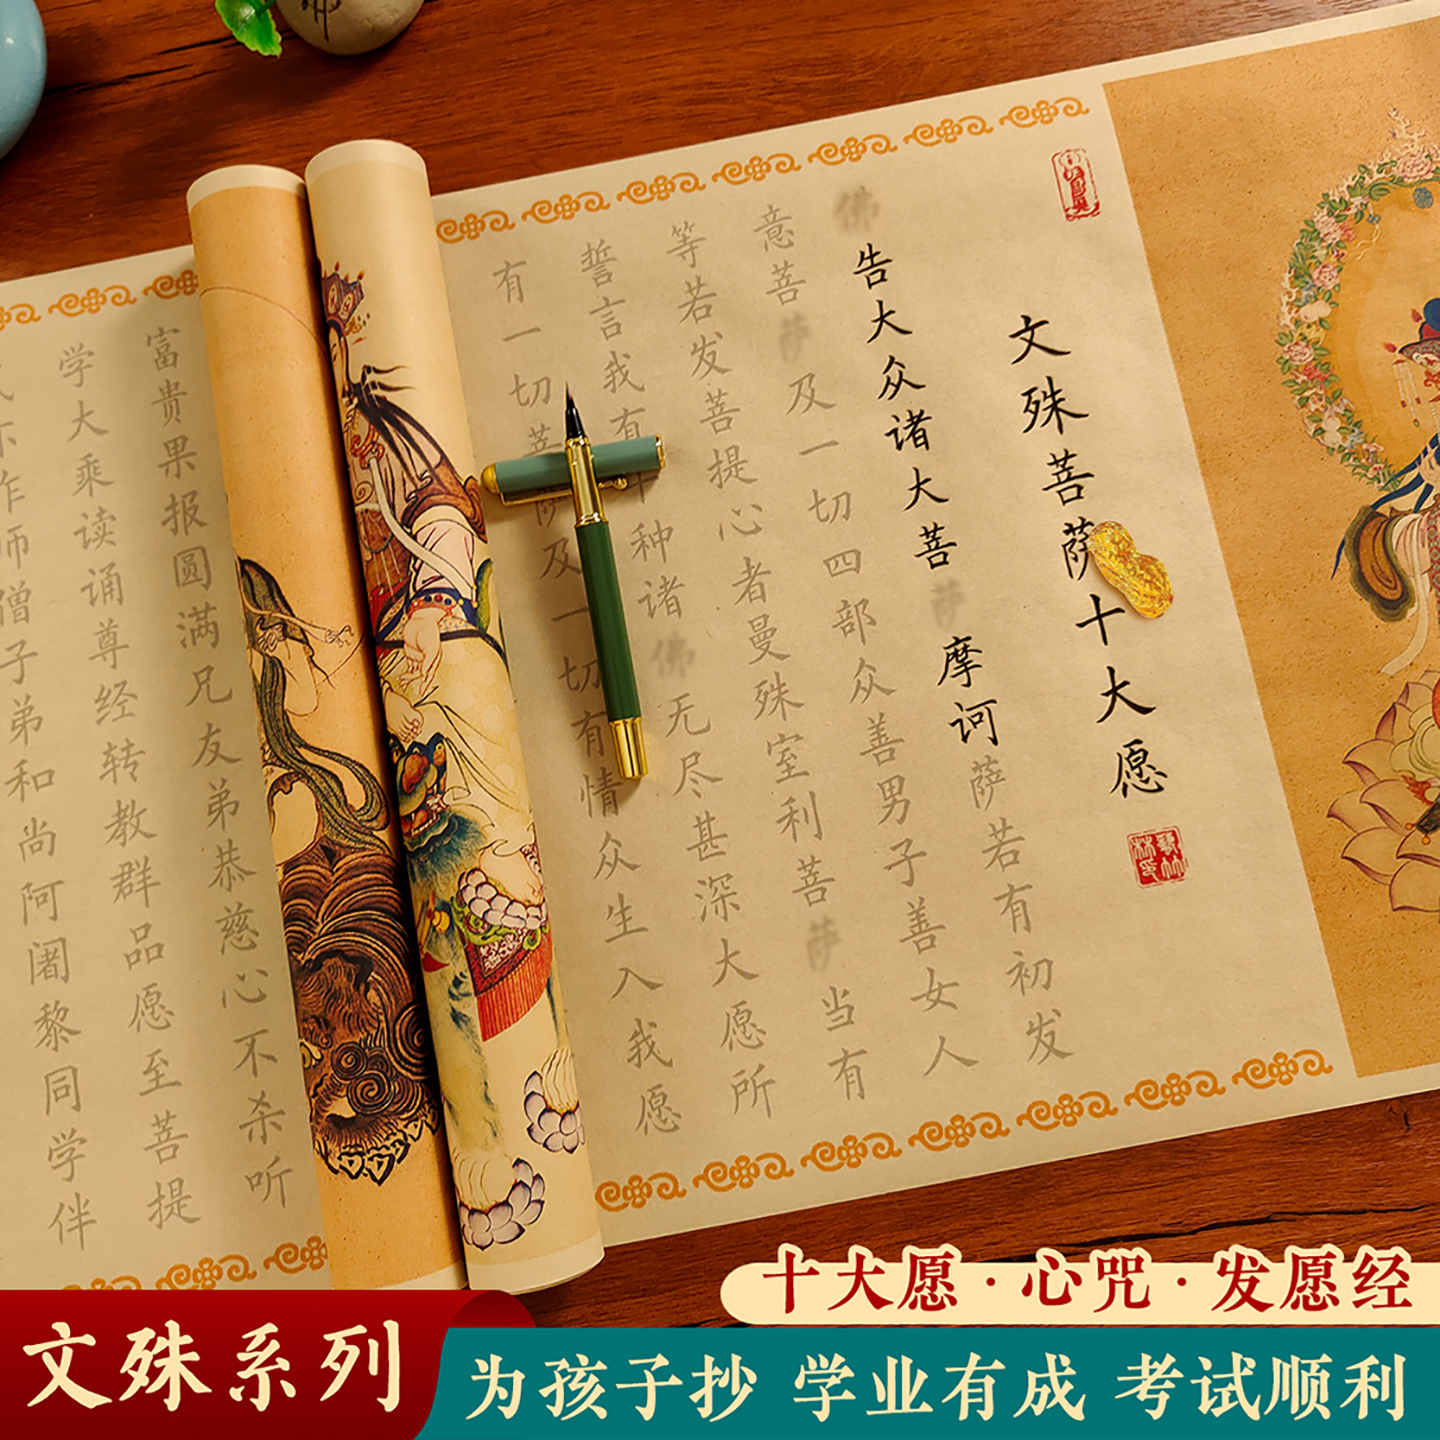 文殊菩萨十大愿
佛告大众诸大菩萨摩诃萨若有初发
意菩萨及一切四部众善男子善女人
等若发菩提心者曼殊室利菩萨当有
誓言我有种诸佛无尽甚深大愿所
有一切菩萨及一切有情众生入我愿
富贵果报圆满兄友弟恭慈心不杀听
学大乘读诵尊经转教群品愿至菩提
师僧子弟和尚阿阇黎同学伴
十大愿·心咒·发愿经
文殊系列
为孩子抄 学业有成 考试顺利